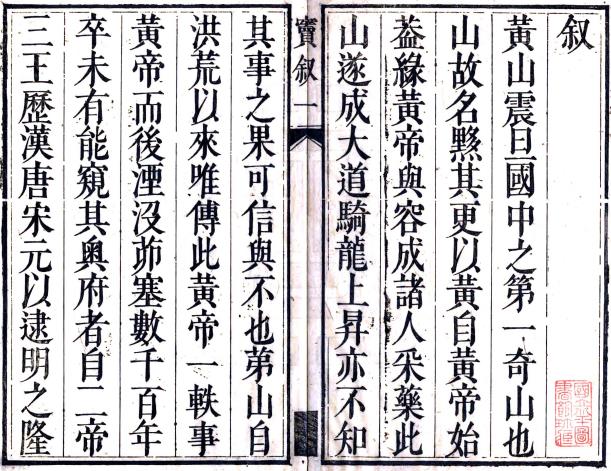 叙
黄山震旦國中之第一奇山也
山故名黟其更以黄自黄帝始
葢緣黄帝與容成諸人采藥此
山遂成大道騎龍上昇亦不知
竇叙一
其事之果可信與不也弟山自
洪荒以來唯傳此黄帝一軼事
黄帝而後湮没茆塞數千百年
卒未有能窺其奥府者自二帝
三王歴漢唐宋元以逮明之隆